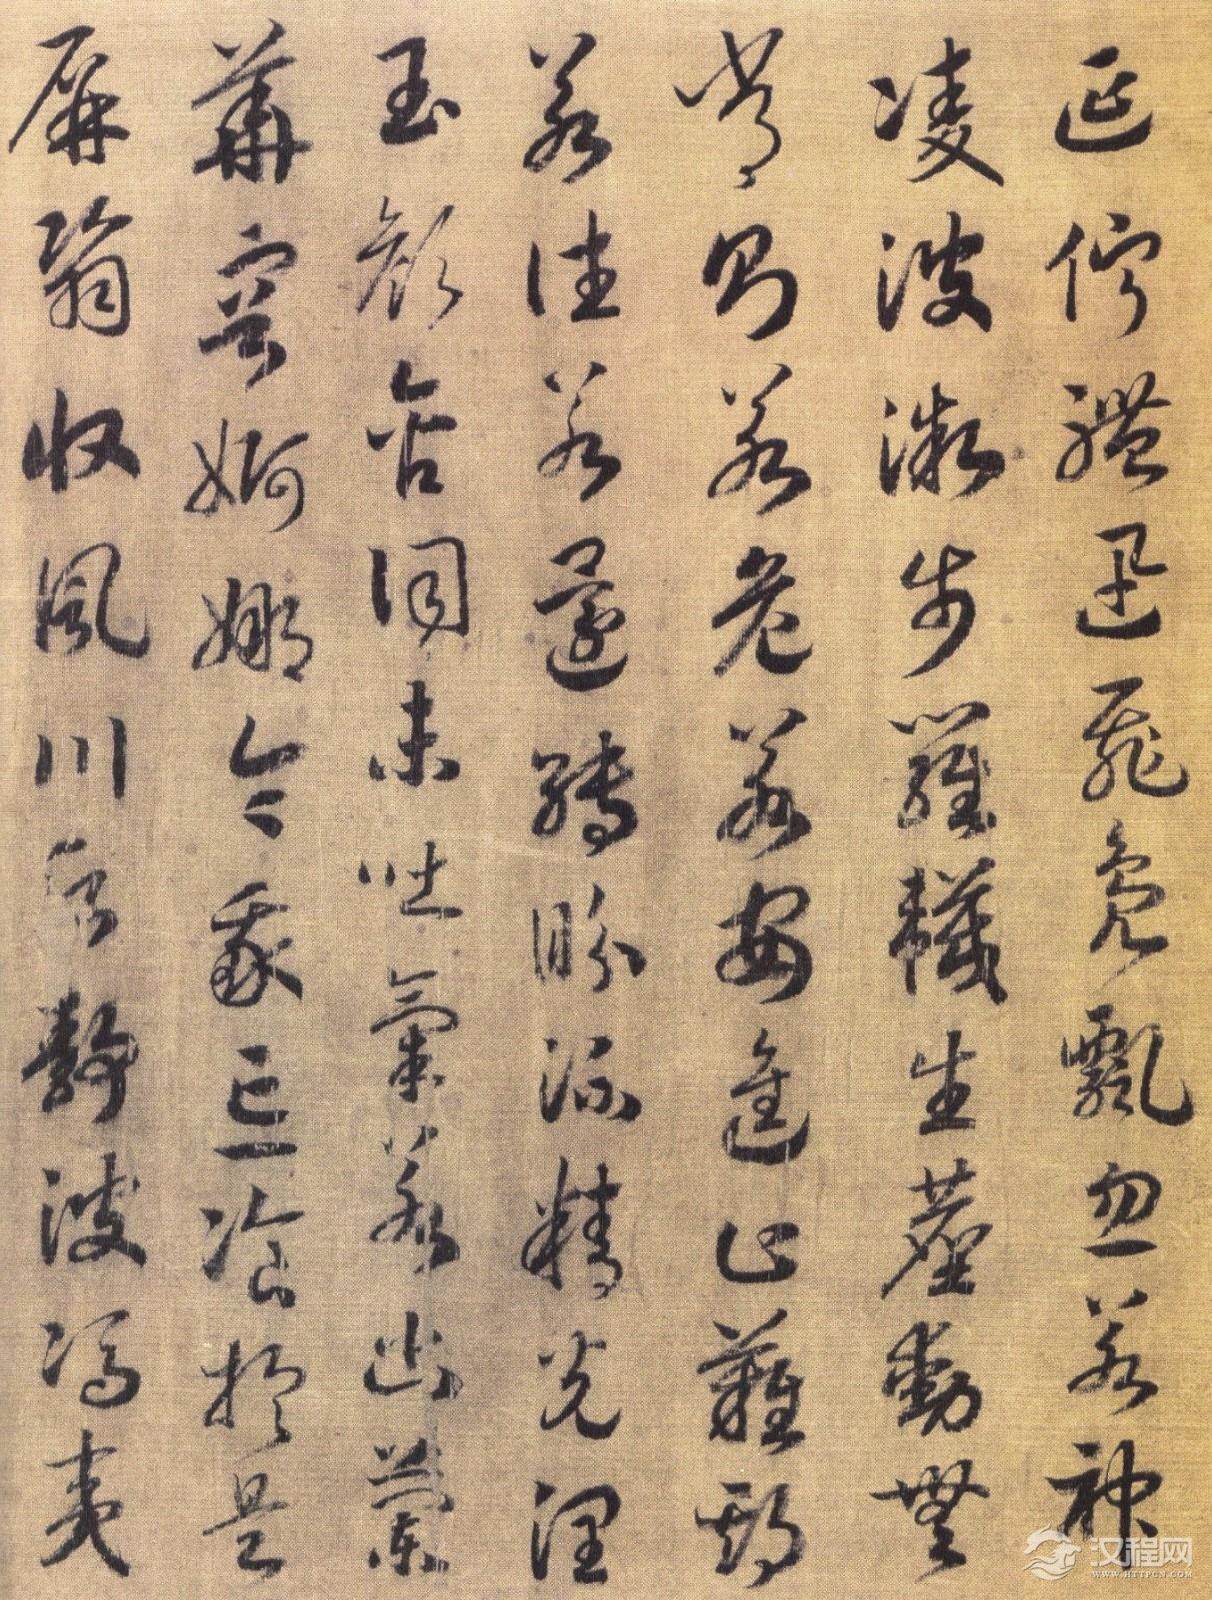 延佇體迅飛鳧飄忽若神
凌波微步羅韈生塵動無
常則若危若安進止難期
若往若還轉眄流精光潤
玉顏含詞未吐氣若幽蘭
華容婀娜令我忘飡於是
屏翳收風川后靜波馮夷
汉程网
WWW.HTTPCN.COM